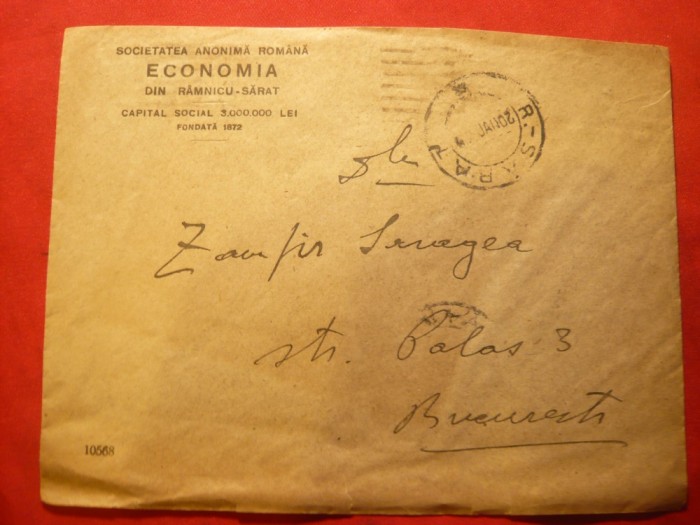 SOCIETATEA ANONIMĂ ROMÂNĂ
ECONOMIA
DIN RÂMNICU-SĂRAT
CAPITAL SOCIAL 3.000.000 LEI
FONDATĂ 1872
R.-SARAT
20 IAN
Zamfir
str. Palas 3
Bucuresti
10568